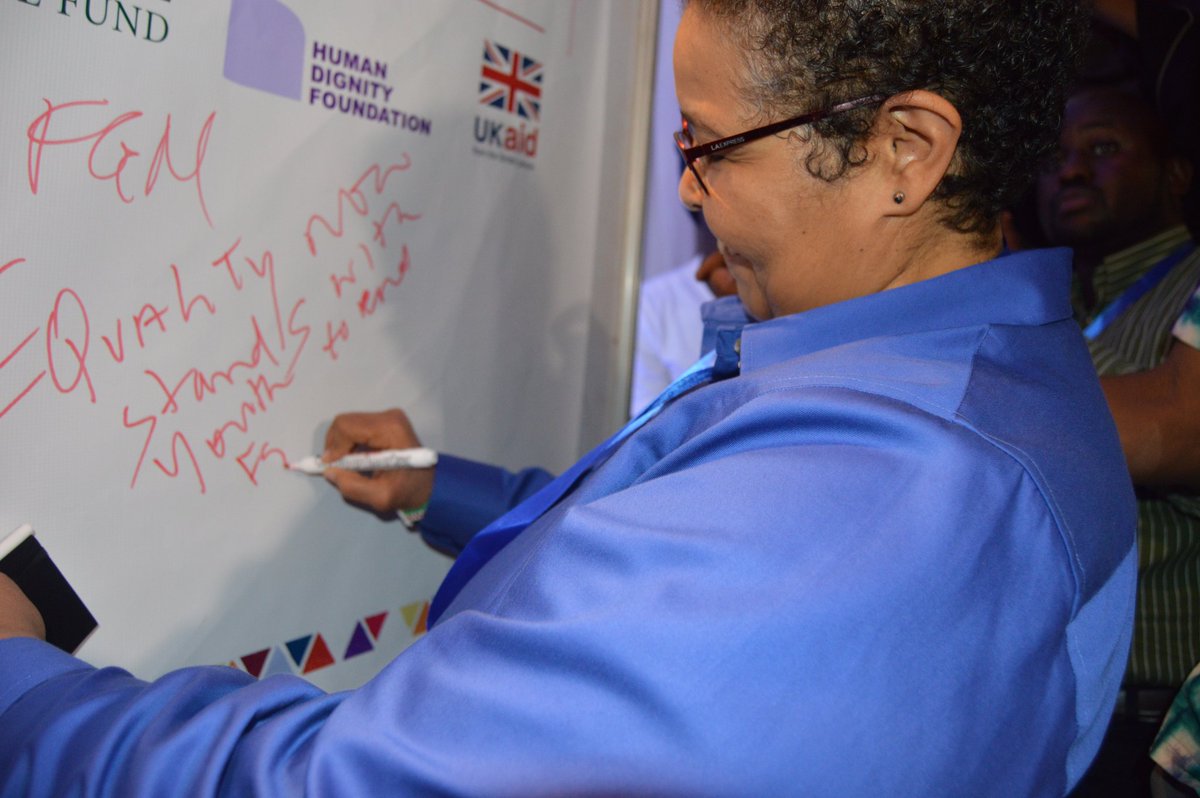 FUND
HUMAN
DIGNITY
FOUNDATION
UKaid
FGM
=Equality Now
stands with
Youth to end
FG
L.A.EXPRESS